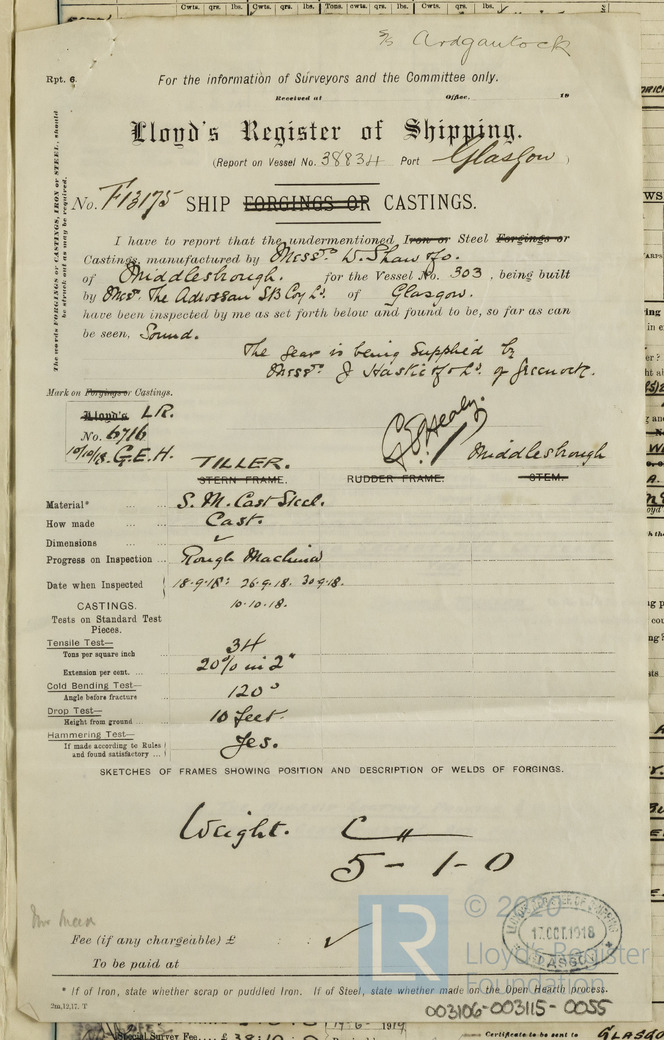 Cwts. qrs. lbs. Cwts. qrs. lbs. Tons. cwts. qrs. lbs. Cwts. qrs. lbs.
S/S Ardgantock
Rpt. 6.
For the information of Surveyors and the Committee only.
Received at Office. 19
Lloyd's Register of Shipping.
(Report on Vessel No. 38834 Port Glasgow)
No. F13175 SHIP FORGINGS OR CASTINGS.
The words FORGINGS or CASTINGS, IRON or STEEL, should
be struck out as may be required.
I have to report that the undermentioned Iron or Steel Forgings or
Castings, manufactured by Messrs W. Shaw & Co.
of Middlesbrough. for the Vessel No. 303, being built
by Messrs The Adrossan S.B. Coy Ld. of Glasgow.
have been inspected by me as set forth below and found to be, so far as can
be seen, Sound.
The gear is being supplied by
Messrs J Hastie & Co Ld. of Greenock.
Mark on Forgings or Castings.
Lloyd's LR.
No. 6716
10/10/18. G.E.H.
G. E. Healey.
Middlesbrough
TILLER.
STERN FRAME. RUDDER FRAME. STEM.
Material* ... ... S. M. Cast Steel.
How made ... ... Cast.
Dimensions ... ... ✓
Progress on Inspection ... Rough Machined
Date when Inspected 18-9-18: 26-9-18. 30-9-18.
CASTINGS. 10-10-18.
Tests on Standard Test
Pieces.
Tensile Test—
Tons per square inch 34
Extension per cent. ... 20% in 2"
Cold Bending Test—
Angle before fracture 120°
Drop Test—
Height from ground ... 10 feet.
Hammering Test—
If made according to Rules
and found satisfactory ... Yes.
SKETCHES OF FRAMES SHOWING POSITION AND DESCRIPTION OF WELDS OF FORGINGS.
Weight. C "
5 - 1 - 0
Fee (if any chargeable) £ : : ✓
To be paid at
LLOYD'S REGISTER OF SHIPPING
17. OCT. 1918
GLASGOW
LR
© 2020
Lloyd's Register
Foundation
* If of Iron, state whether scrap or puddled Iron. If of Steel, state whether made on the Open Hearth process.
2m,12,17. T
003106-003115-0055
Special Survey Fee.. £ 38:10 17-6-1919
Certificate to be sent to GLASGO